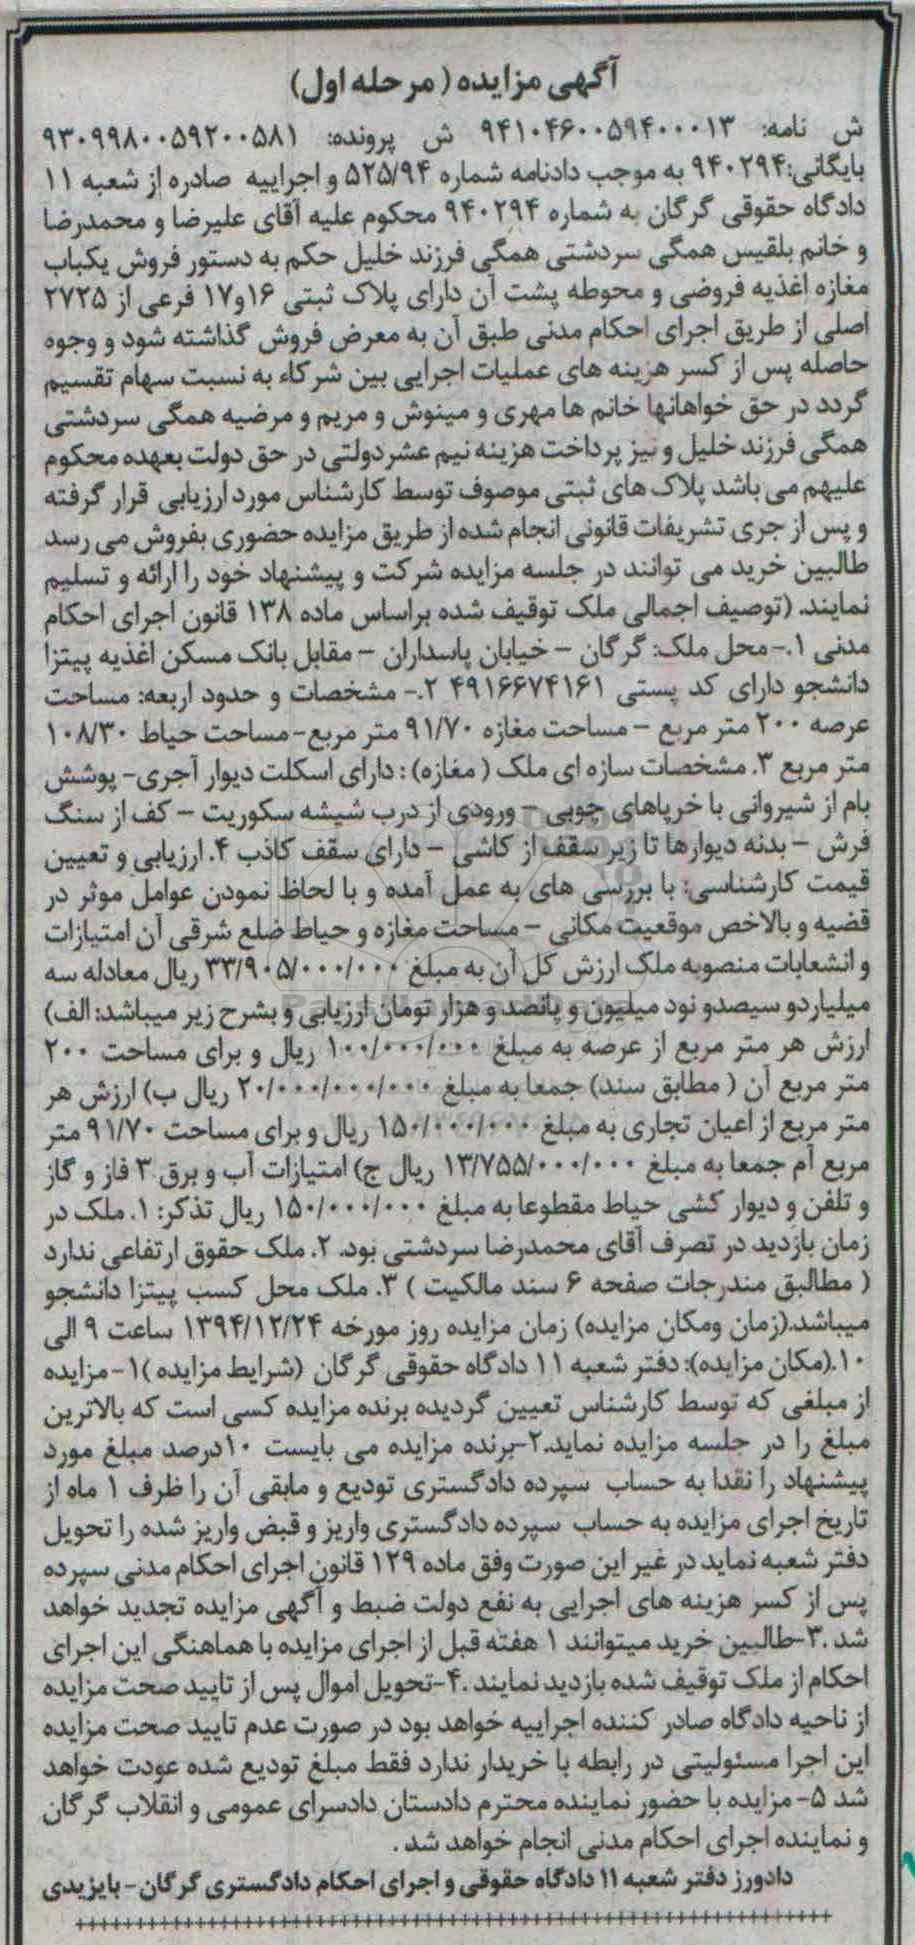 آگهی مزایده ( مرحله اول)
ش نامه: ۹۴۱۰۴۶۰۰۵۹۴۰۰۰۱۳ ش پرونده: ۹۳۰۹۹۸۰۰۵۹۲۰۰۵۸۱
بایگانی:۹۴۰۲۹۴ به موجب دادنامه شماره ۵۲۵/۹۴ و اجراییه صادره از شعبه ۱۱
دادگاه حقوقی گرگان به شماره ۹۴۰۲۹۴ محکوم علیه آقای علیرضا و محمدرضا
و خانم بلقیس همگی سردشتی همگی فرزند خلیل حکم به دستور فروش یکباب
مغازه اغذیه فروضی و محوطه پشت آن دارای پلاک ثبتی ۱۶و۱۷ فرعی از ۲۷۲۵
اصلی از طریق اجرای احکام مدنی طبق آن به معرض فروش گذاشته شود و وجوه
حاصله پس از کسر هزینه های عملیات اجرایی بین شرکاء به نسبت سهام تقسیم
گردد در حق خواهانها خانم ها مهری و مینوش و مریم و مرضیه همگی سردشتی
همگی فرزند خلیل و نیز پرداخت هزینه نیم عشر دولتی در حق دولت بعهده محکوم
علیهم می باشد پلاک های ثبتی موصوف توسط کارشناس مورد ارزیابی قرار گرفته
و پس از جری تشریفات قانونی انجام شده از طریق مزایده حضوری بفروش می رسد
طالبین خرید می توانند در جلسه مزایده شرکت و پیشنهاد خود را ارائه و تسلیم
نمایند. (توصیف اجمالی ملک توقیف شده براساس ماده ۱۳۸ قانون اجرای احکام
مدنی ۱.- محل ملک: گرگان – خیابان پاسداران – مقابل بانک مسکن اغذیه پیتزا
دانشجو دارای کد پستی ۴۹۱۶۶۷۴۱۶۱ ۲.- مشخصات و حدود اربعه: مساحت
عرصه ۲۰۰ متر مربع – مساحت مغازه ۹۱/۷۰ متر مربع- مساحت حیاط ۱۰۸/۳۰
متر مربع ۳. مشخصات سازه ای ملک ( مغازه) : دارای اسکلت دیوار آجری- پوشش
بام از شیروانی با خرپاهای چوبی – ورودی از درب شیشه سکوریت – کف از سنگ
فرش – بدنه دیوارها تا زیر سقف از کاشی – دارای سقف کاذب ۴. ارزیابی و تعیین
قیمت کارشناسی: با بررسی های به عمل آمده و با لحاظ نمودن عوامل موثر در
قضیه و بالاخص موقعیت مکانی – مساحت مغازه و حیاط ضلع شرقی آن امتیازات
و انشعابات منصوبه ملک ارزش کل آن به مبلغ ۳۳/۹۰۵/۰۰۰/۰۰۰ ریال معادله سه
میلیارد و سیصدو نود میلیون و پانصد و هزار تومان ارزیابی و بشرح زیر میباشد: الف)
ارزش هر متر مربع از عرصه به مبلغ ۱۰۰/۰۰۰/۰۰۰ ریال و برای مساحت ۲۰۰
متر مربع آن ( مطابق سند) جمعا به مبلغ ۲۰/۰۰۰/۰۰۰/۰۰۰ ریال ب) ارزش هر
متر مربع از اعیان تجاری به مبلغ ۱۵۰/۰۰۰/۰۰۰ ریال و برای مساحت ۹۱/۷۰ متر
مربع آم جمعا به مبلغ ۱۳/۷۵۵/۰۰۰/۰۰۰ ریال ج) امتیازات آب و برق ۳ فاز و گاز
و تلفن و دیوار کشی حیاط مقطوعا به مبلغ ۱۵۰/۰۰۰/۰۰۰ ریال تذکر: ۱. ملک در
زمان بازدید در تصرف آقای محمدرضا سردشتی بود. ۲. ملک حقوق ارتفاعی ندارد
( مطالبق مندرجات صفحه ۶ سند مالکیت ) ۳. ملک محل کسب پیتزا دانشجو
میباشد.(زمان ومکان مزایده) زمان مزایده روز مورخه ۱۳۹۴/۱۲/۲۴ ساعت ۹ الی
۱۰.(مکان مزایده): دفتر شعبه ۱۱ دادگاه حقوقی گرگان (شرایط مزایده )۱- مزایده
از مبلغی که توسط کارشناس تعیین گردیده برنده مزایده کسی است که بالاترین
مبلغ را در جلسه مزایده نماید.۲-برنده مزایده می بایست ۱۰درصد مبلغ مورد
پیشنهاد را نقدا به حساب سپرده دادگستری تودیع و مابقی آن را ظرف ۱ ماه از
تاریخ اجرای مزایده به حساب سپرده دادگستری واریز و قبض واریز شده را تحویل
دفتر شعبه نماید در غیر این صورت وفق ماده ۱۲۹ قانون اجرای احکام مدنی سپرده
پس از کسر هزینه های اجرایی به نفع دولت ضبط و آگهی مزایده تجدید خواهد
شد .۳-طالبین خرید میتوانند ۱ هفته قبل از اجرای مزایده با هماهنگی این اجرای
احکام از ملک توقیف شده بازدید نمایند .۴-تحویل اموال پس از تایید صحت مزایده
از ناحیه دادگاه صادر کننده اجراییه خواهد بود در صورت عدم تایید صحت مزایده
این اجرا مسئولیتی در رابطه با خریدار ندارد فقط مبلغ تودیع شده عودت خواهد
شد ۵- مزایده با حضور نماینده محترم دادستان دادسرای عمومی و انقلاب گرگان
و نماینده اجرای احکام مدنی انجام خواهد شد .
دادورز دفتر شعبه ۱۱ دادگاه حقوقی و اجرای احکام دادگستری گرگان- بایزیدی